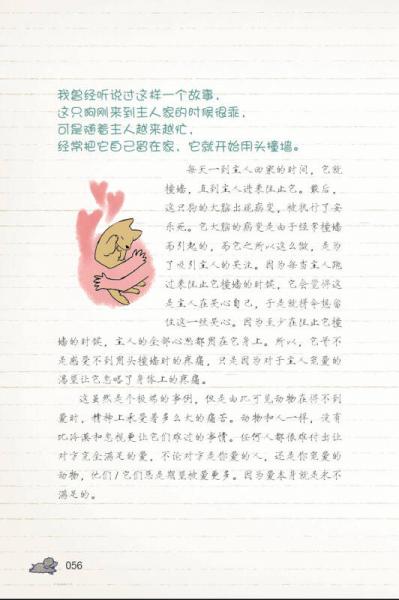 我曾经听说过这样一个故事，
这只狗刚来到主人家的时候很乖，
可是随着主人越来越忙，
经常把它自己留在家，它就开始用头撞墙。
每天一到主人回家的时间，它就
撞墙，直到主人进来阻止它。最后，
这只狗的大脑出现病变，被执行了安
乐死。它大脑的病变是由于经常撞墙
而引起的，而它之所以这么做，是为
了吸引主人的关注。因为每当主人跑
过来阻止它撞墙的时候，它会觉得这
是主人在关心自己，于是就拼命想留
住这一丝关心。因为至少在阻止它撞
墙的时候，主人的全部心思都用在它身上。所以，它并不
是感受不到用头撞墙时的疼痛，只是因为对于主人宠爱的
渴望让它忽略了身体上的疼痛。
这虽然是个极端的事例，但是由此可见动物在得不到
爱时，精神上承受着多么大的痛苦。动物和人一样，没有
比冷漠和忽视更让它们难过的事情。任何人都很难付出让
对方完全满足的爱，不论对方是你爱的人，还是你宠爱的
动物，他们/它们总是期望被爱更多。因为爱本身就是永不
满足的。
056